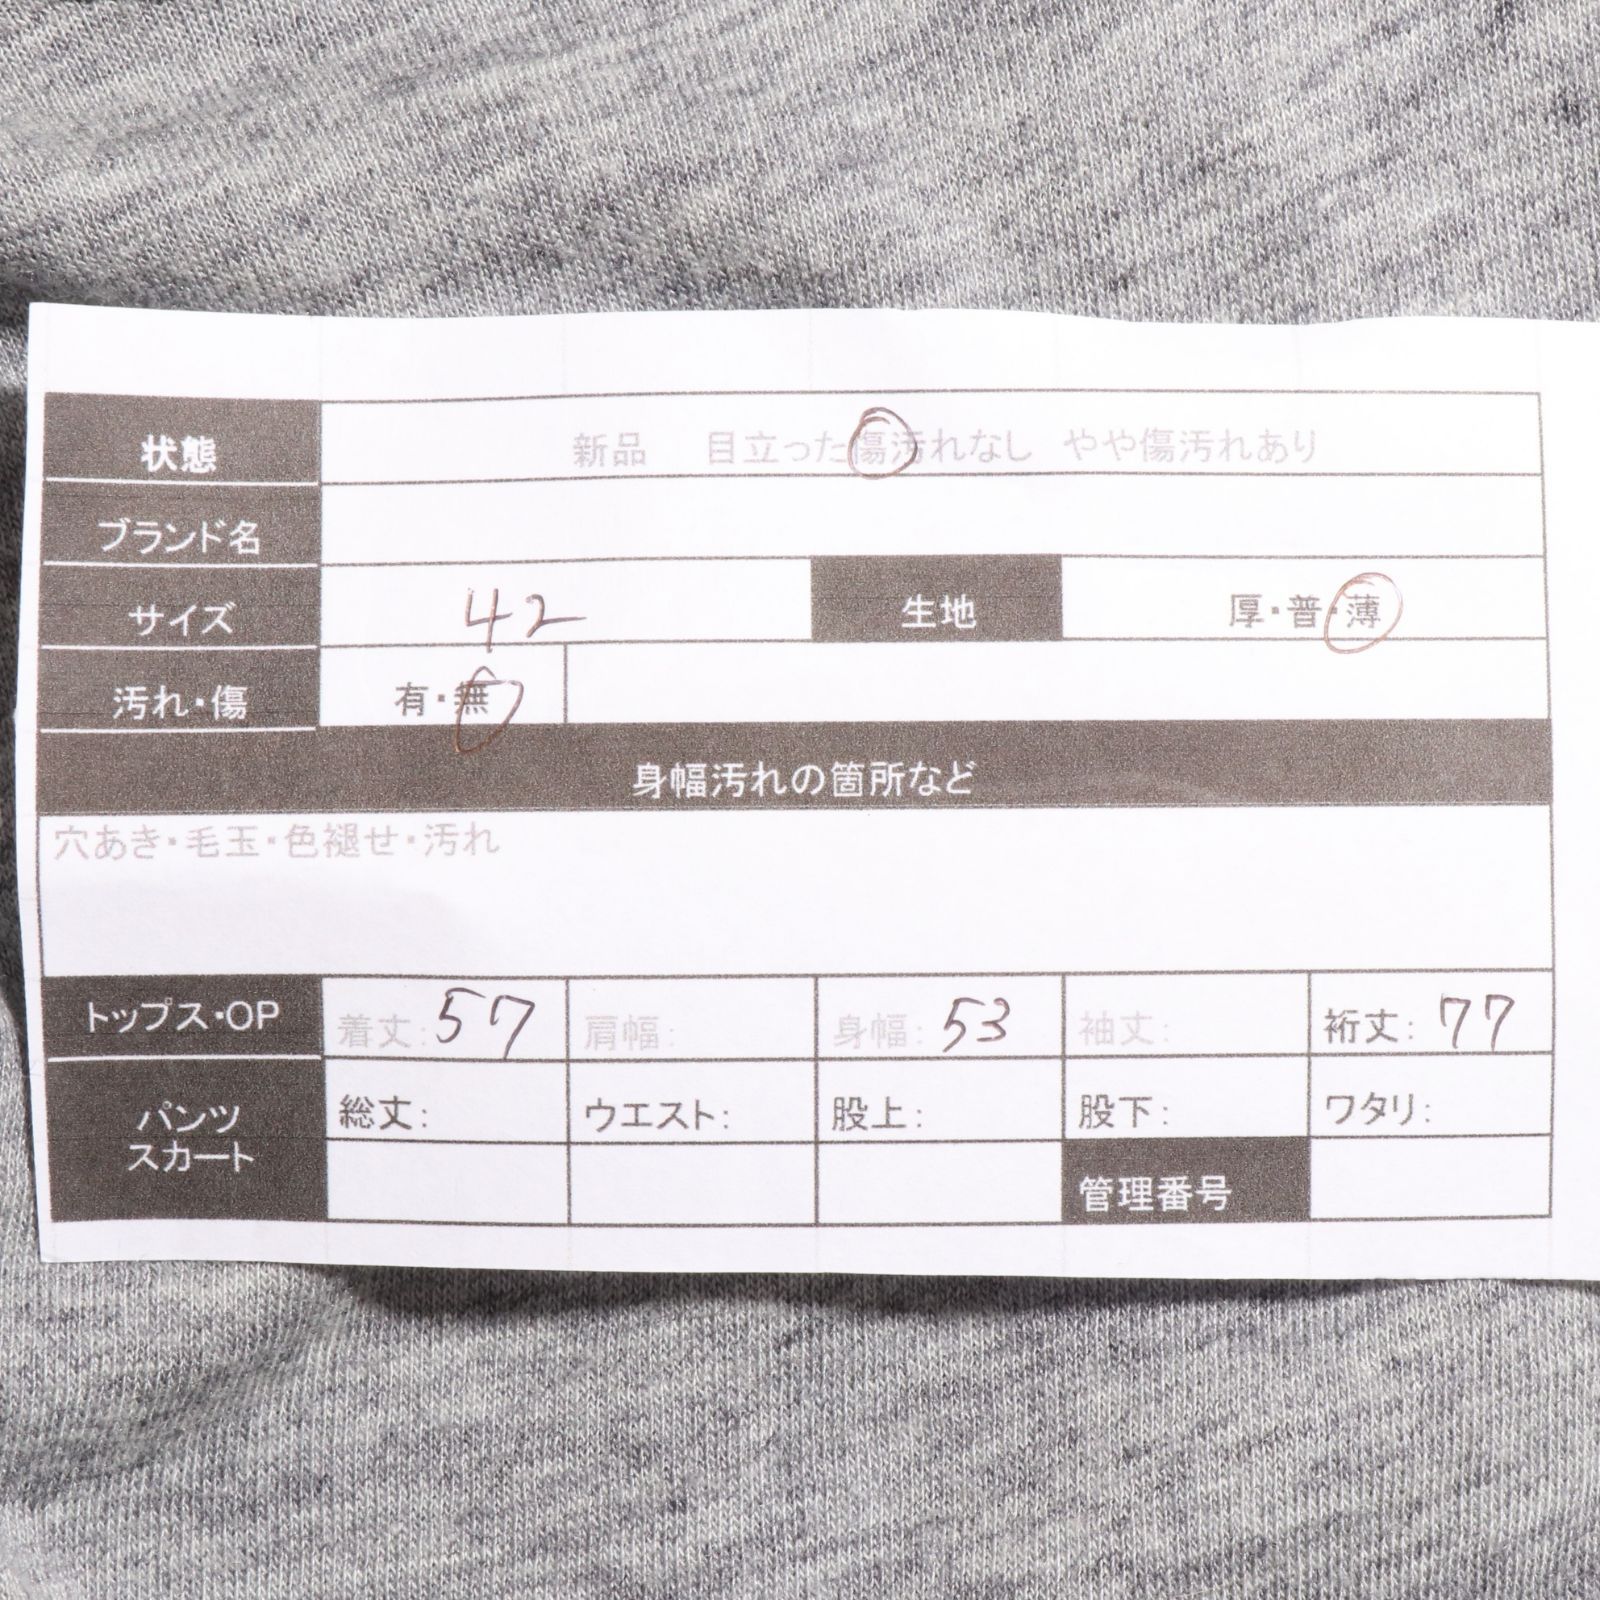 状態 新品 目立った傷汚れなし やや傷汚れあり
ブランド名
サイズ 42 生地 厚・普・薄
汚れ・傷 有・無
身幅汚れの箇所など
穴あき・毛玉・色褪せ・汚れ
トップス・OP 着丈: 57 肩幅: 身幅: 53 袖丈: 裄丈: 77
パンツ 総丈: ウエスト: 股上: 股下: ワタリ:
スカート
管理番号